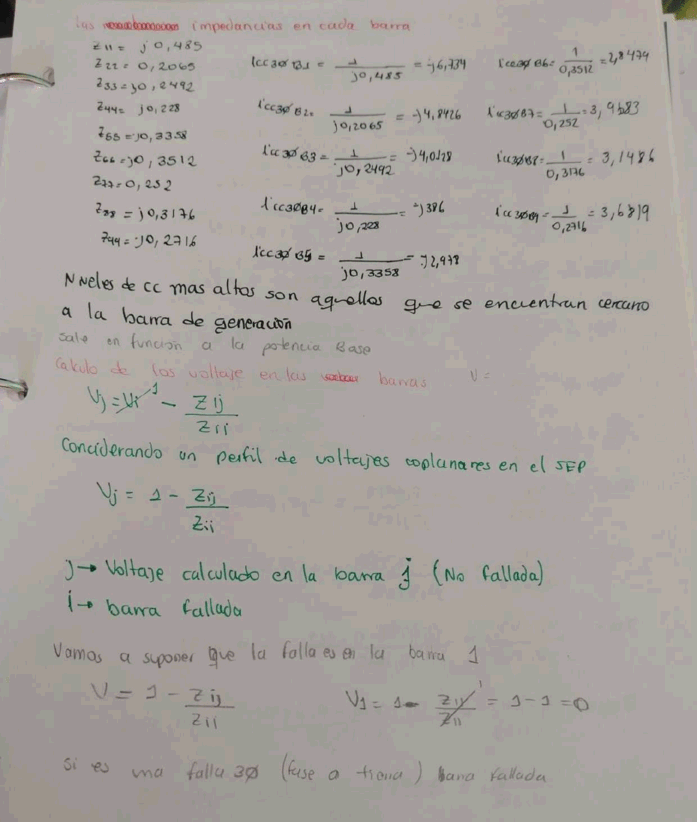 las impedancias en cada barra
Z11 = j0,485
Z22 = 0,2065
Z33 = j0,2492
Z44 = j0,228
Z55 = j0,3358
Z66 = j0,3512
Z77 = 0,252
Z88 = j0,3176
Z99 = j0,2716
Icc3Ø B1 = 1 / j0,485 = -j6,734
Icc3Ø B2 = 1 / j0,2065 = -j4,8426
Icc3Ø B3 = 1 / j0,2492 = -j4,0128
Icc3Ø B4 = 1 / j0,228 =
Icc3Ø B5 = 1 / j0,3358 = -j2,978
Icc3Ø B6 = 1 / 0,3512 = 2,8474
Icc3Ø B7 = 1 / 0,252 = 3,9683
Icc3Ø B8 = 1 / 0,3176 = 3,1486
Icc3Ø B9 = 1 / 0,2716 = 3,6819
Niveles de cc mas altos son aquellos que se encuentran cercano
a la barra de generación
sale en función a la potencia Base
Calculo de los voltaje en las barras V =
Vj = Vi 1 - Zij / Zii
Conciderando un perfil de voltajes coplanares en el SEP
Vj = 1 - Zij / Zii
j → Voltaje calculado en la barra j (No fallada)
i → barra fallada
Vamos a suponer que la falla es en la barra 1
V = 1 - Zij / Zii
V1 = 1 - Z11 / Z11 1 = 1 - 1 = 0
Si es una falla 3Ø (fase a tierra) barra fallada